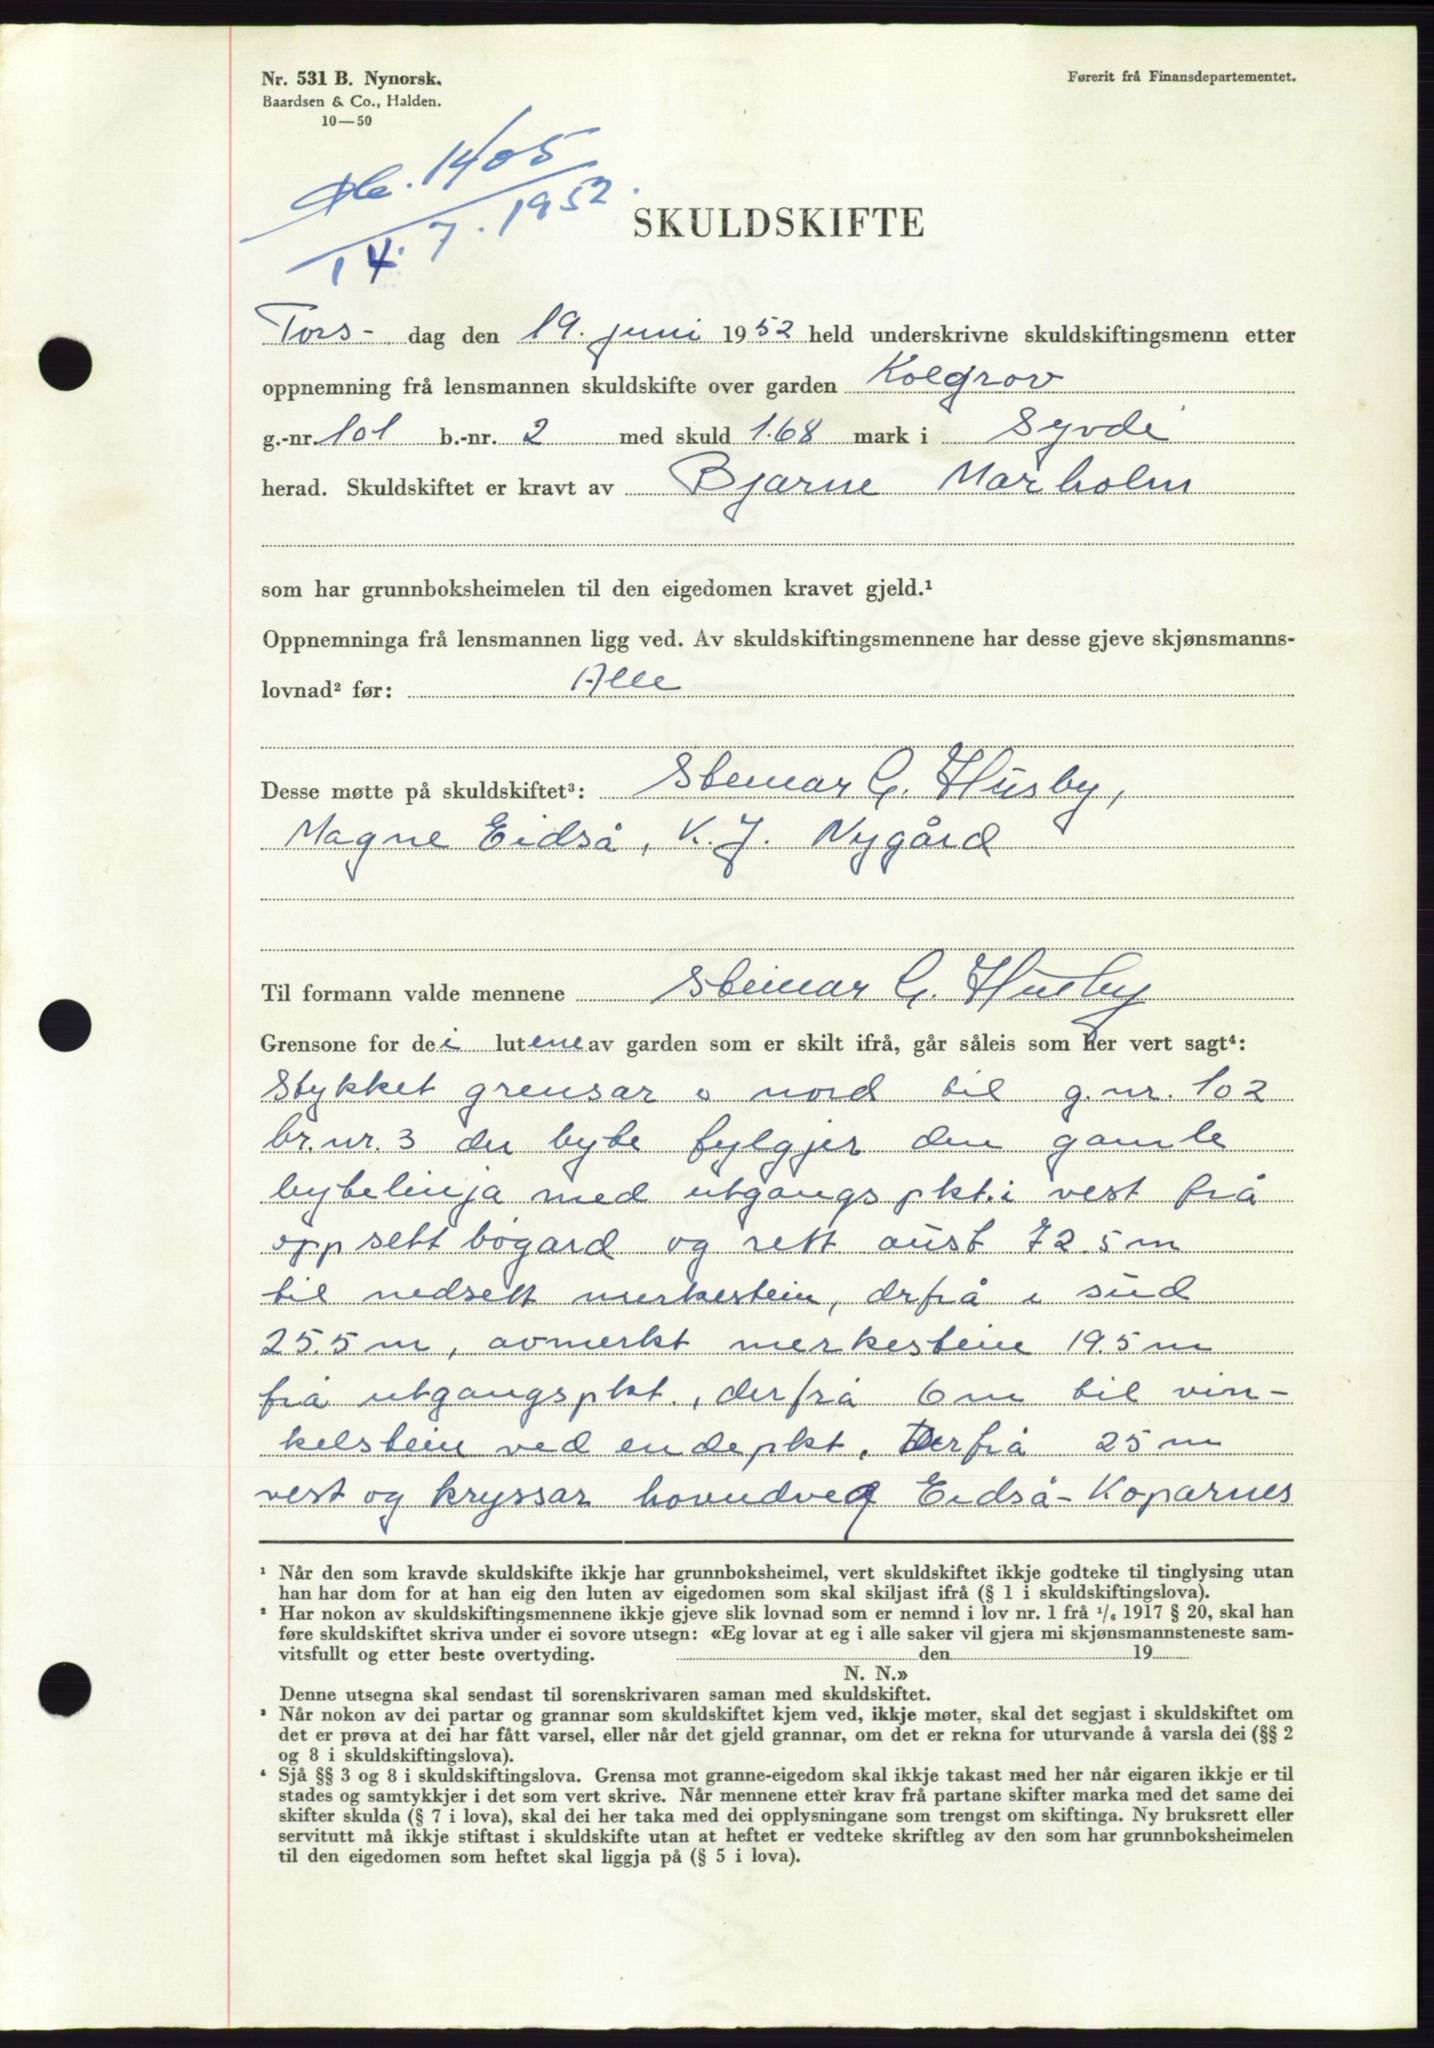 Nr. 531 B. Nynorsk.
Baardsen & Co., Halden.
10—50
Førerit frå Finansdepartementet.
1405
14.7.1952.
SKULDSKIFTE
Tors- dag den 19. juni 1952 held underskrivne skuldskiftingsmenn etter
oppnemning frå lensmannen skuldskifte over garden Kolgrov
g.-nr. 101 b.-nr. 2 med skuld 1.68 mark i Syvde
herad. Skuldskiftet er kravt av Bjarne Marholm
som har grunnboksheimelen til den eigedomen kravet gjeld.¹
Oppnemninga frå lensmannen ligg ved. Av skuldskiftingsmennene har desse gjeve skjønsmanns-
lovnad² før: Alle
Desse møtte på skuldskiftet³: Steinar G. Husby,
Magne Eidså, K. J. Nygård
Til formann valde mennene Steinar G. Husby
Grensone for dei lutene av garden som er skilt ifrå, går såleis som her vert sagt⁴:
Stykket grensar i nord til g.nr. 102
br.nr. 3 der byte fylgjer den gamle
bytelinja med utgangspkt. i vest frå
oppsett bøgard og rett aust 72.5 m
til nedsett merkestein, derfrå i süd
25.5 m, avmerkt merkestein 19.5 m
frå utgangspkt., derfrå 6 m til vin-
kelstein ved endepkt. Derfrå 25 m
vest og kryssar hovudveg Eidså-Koparnes
¹ Når den som kravde skuldskifte ikkje har grunnboksheimel, vert skuldskiftet ikkje godteke til tinglysing utan
han har dom for at han eig den luten av eigedomen som skal skiljast ifrå (§ 1 i skuldskiftingslova).
² Har nokon av skuldskiftingsmennene ikkje gjeve slik lovnad som er nemnd i lov nr. 1 frå ¹/₆ 1917 § 20, skal han
føre skuldskiftet skriva under ei sovore utsegn: «Eg lovar at eg i alle saker vil gjera mi skjønsmannsteneste sam-
vitsfullt og etter beste overtyding. den 19
N. N.»
Denne utsegna skal sendast til sorenskrivaren saman med skuldskiftet.
³ Når nokon av dei partar og grannar som skuldskiftet kjem ved, ikkje møter, skal det segjast i skuldskiftet om
det er prøva at dei har fått varsel, eller når det gjeld grannar, om det er rekna for uturvande å varsla dei (§§ 2
og 8 i skuldskiftingslova).
⁴ Sjå §§ 3 og 8 i skuldskiftingslova. Grensa mot granne-eigedom skal ikkje takast med her når eigaren ikkje er til
stades og samtykkjer i det som vert skrive. Når mennene etter krav frå partane skifter marka med det same dei
skifter skulda (§ 7 i lova), skal dei her taka med dei opplysningane som trengst om skiftinga. Ny bruksrett eller
servitutt må ikkje stiftast i skuldskifte utan at heftet er vedteke skriftleg av den som har grunnboksheimelen
til den eigedomen som heftet skal liggja på (§ 5 i lova).